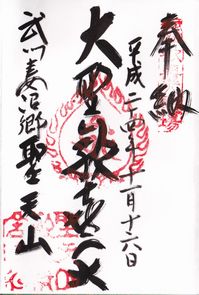 奉納
平成二十四年十一月十六日
大聖歓喜天
武州妻沼郷聖天山